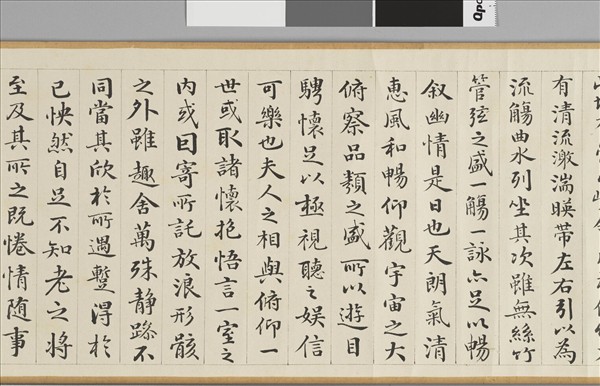 有清流激湍暎帶左右引以為
流觴曲水列坐其次雖無絲竹
管弦之盛一觴一詠亦足以暢
叙幽情是日也天朗氣清
惠風和暢仰觀宇宙之大
俯察品類之盛所以遊目
騁懷足以極視聽之娱信
可樂也夫人之相與俯仰一
世或取諸懷抱悟言一室之
内或因寄所託放浪形骸
之外雖趣舍萬殊静躁不
同當其欣於所遇蹔得於
己怏然自足不知老之將
至及其所之既惓情随事